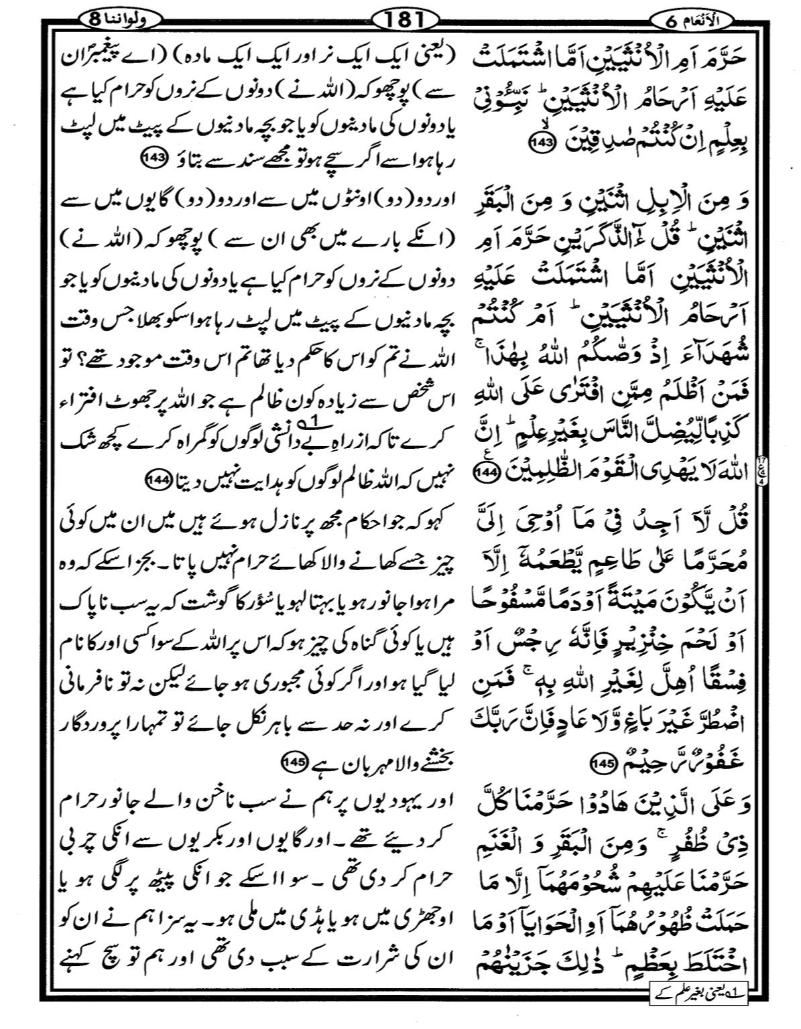 الْاَنْعَام 6
181
ولواننا 8
حَرَّمَ اَمِ الْاُنْثَيَيْنِ اَمَّا اشْتَمَلَتْ
عَلَيْهِ اَرْحَامُ الْاُنْثَيَيْنِ ؕ نَبِّـُٔوْنِيْ
بِعِلْمٍ اِنْ كُنْتُمْ صٰدِقِيْنَ ۙ 143
وَ مِنَ الْاِبِلِ اثْنَيْنِ وَ مِنَ الْبَقَرِ
اثْنَيْنِ ؕ قُلْ ءٰٓالذَّكَرَيْنِ حَرَّمَ اَمِ
الْاُنْثَيَيْنِ اَمَّا اشْتَمَلَتْ عَلَيْهِ
اَرْحَامُ الْاُنْثَيَيْنِ ؕ اَمْ كُنْتُمْ
شُهَدَآءَ اِذْ وَصّٰىكُمُ اللّٰهُ بِهٰذَا ۚ
فَمَنْ اَظْلَمُ مِمَّنِ افْتَرٰى عَلَى اللّٰهِ
كَذِبًا لِّيُضِلَّ النَّاسَ بِغَيْرِ عِلْمٍ ؕ اِنَّ
اللّٰهَ لَا يَهْدِي الْقَوْمَ الظّٰلِمِيْنَ ع 144
قُلْ لَّاۤ اَجِدُ فِيْ مَاۤ اُوْحِيَ اِلَيَّ
مُحَرَّمًا عَلٰى طَاعِمٍ يَّطْعَمُهٗۤ اِلَّاۤ
اَنْ يَّكُوْنَ مَيْتَةً اَوْ دَمًا مَّسْفُوْحًا
اَوْ لَحْمَ خِنْزِيْرٍ فَاِنَّهٗ رِجْسٌ اَوْ
فِسْقًا اُهِلَّ لِغَيْرِ اللّٰهِ بِهٖ ۚ فَمَنِ
اضْطُرَّ غَيْرَ بَاغٍ وَّلَا عَادٍ فَاِنَّ رَبَّكَ
غَفُوْرٌ رَّحِيْمٌ 145
وَعَلَى الَّذِيْنَ هَادُوْا حَرَّمْنَا كُلَّ
ذِيْ ظُفُرٍ ۚ وَمِنَ الْبَقَرِ وَ الْغَنَمِ
حَرَّمْنَا عَلَيْهِمْ شُحُوْمَهُمَاۤ اِلَّا مَا
حَمَلَتْ ظُهُوْرُهُمَاۤ اَوِ الْحَوَايَاۤ اَوْ مَا
اخْتَلَطَ بِعَظْمٍ ؕ ذٰلِكَ جَزَيْنٰهُمْ
(یعنی ایک ایک نر اور ایک ایک مادہ) (اے پیغمبرؐ ان
سے) پوچھو کہ (اللہ نے) دونوں کے نروں کو حرام کیا ہے
یا دونوں کی مادینوں کو یا جو بچہ مادنیوں کے پیٹ میں لپٹ
رہا ہو اسے اگر سچے ہو تو مجھے سند سے بتاؤ 143
اور دو (دو) اونٹوں میں سے اور دو (دو) گایوں میں سے
(انکے بارے میں بھی ان سے) پوچھو کہ (اللہ نے)
دونوں کے نروں کو حرام کیا ہے یا دونوں کی مادینوں کو یا جو
بچہ مادنیوں کے پیٹ میں لپٹ رہا ہو اسکو بھلا جس وقت
اللہ نے تم کو اس کا حکم دیا تھا تم اس وقت موجود تھے؟ تو
اس شخص سے زیادہ کون ظالم ہے جو اللہ پر جھوٹ افتراء
کرے تا کہ از راہِ بے دانشی 1 لوگوں کو گمراہ کرے کچھ شک
نہیں کہ اللہ ظالم لوگوں کو ہدایت نہیں دیتا 144
کہو کہ جو احکام مجھ پر نازل ہوئے ہیں میں ان میں کوئی
چیز جسے کھانے والا کھائے حرام نہیں پاتا۔ بجز اسکے کہ وہ
مرا ہوا جانور ہو یا بہتا لہو یا سُوٴر کا گوشت کہ یہ سب ناپاک
ہیں یا کوئی گناہ کی چیز ہو کہ اس پر اللہ کے سوا کسی اور کا نام
لیا گیا ہو اور اگر کوئی مجبوری ہو جائے لیکن نہ تو نافرمانی
کرے اور نہ حد سے باہر نکل جائے تو تمہارا پروردگار
بخشنے والا مہربان ہے 145
اور یہودیوں پر ہم نے سب ناخن والے جانور حرام
کر دیئے تھے۔ اور گایوں اور بکریوں سے انکی چربی
حرام کر دی تھی۔ سوا اسکے جو انکی پیٹھ پر لگی ہو یا
اوجھڑی میں ہو یا ہڈی میں ملی ہو۔ یہ سزا ہم نے ان کو
ان کی شرارت کے سبب دی تھی اور ہم تو سچ کہنے
1 یعنی بغیر علم کے